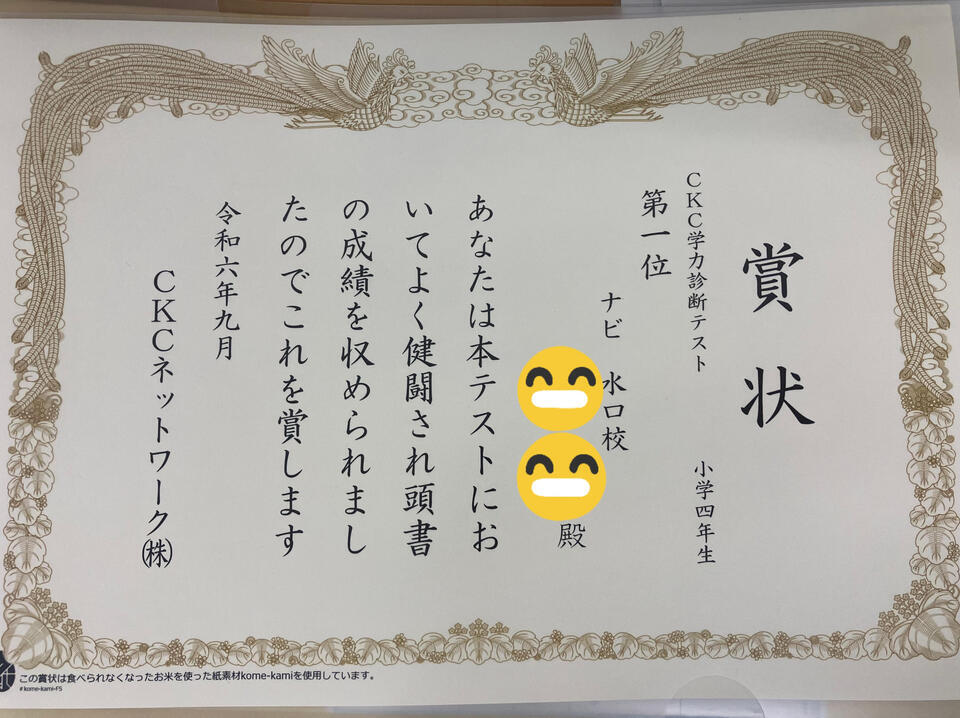 賞状
CKC学力診断テスト 小学四年生
第一位
ナビ 水口校
殿
あなたは本テストにお
いてよく健闘され頭書
の成績を収められまし
たのでこれを賞します
令和六年九月
CKCネットワーク㈱
この賞状は食べられなくなったお米を使った紙素材kome-kamiを使用しています。
#kome-kami-FS